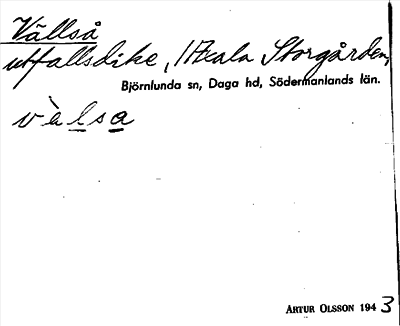 Vällså
utfallsdike, Storgården,
Björnlunda sn, Daga hd, Södermanlands län.
v ὲ l s a
ARTUR OLSSON 1943